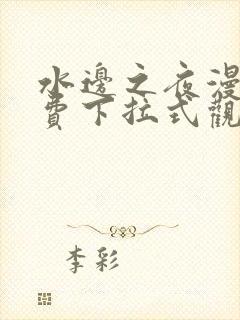 水邊之夜漫
費下拉式觀
李彩